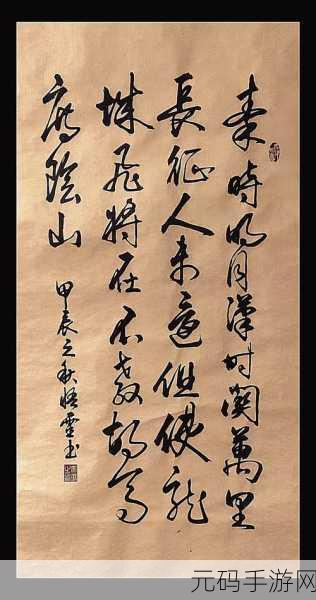 秦時明月漢时關萬里
長征人未還但使龍
城飛將在不教胡馬
度陰山
甲辰之秋 书
元码手游网